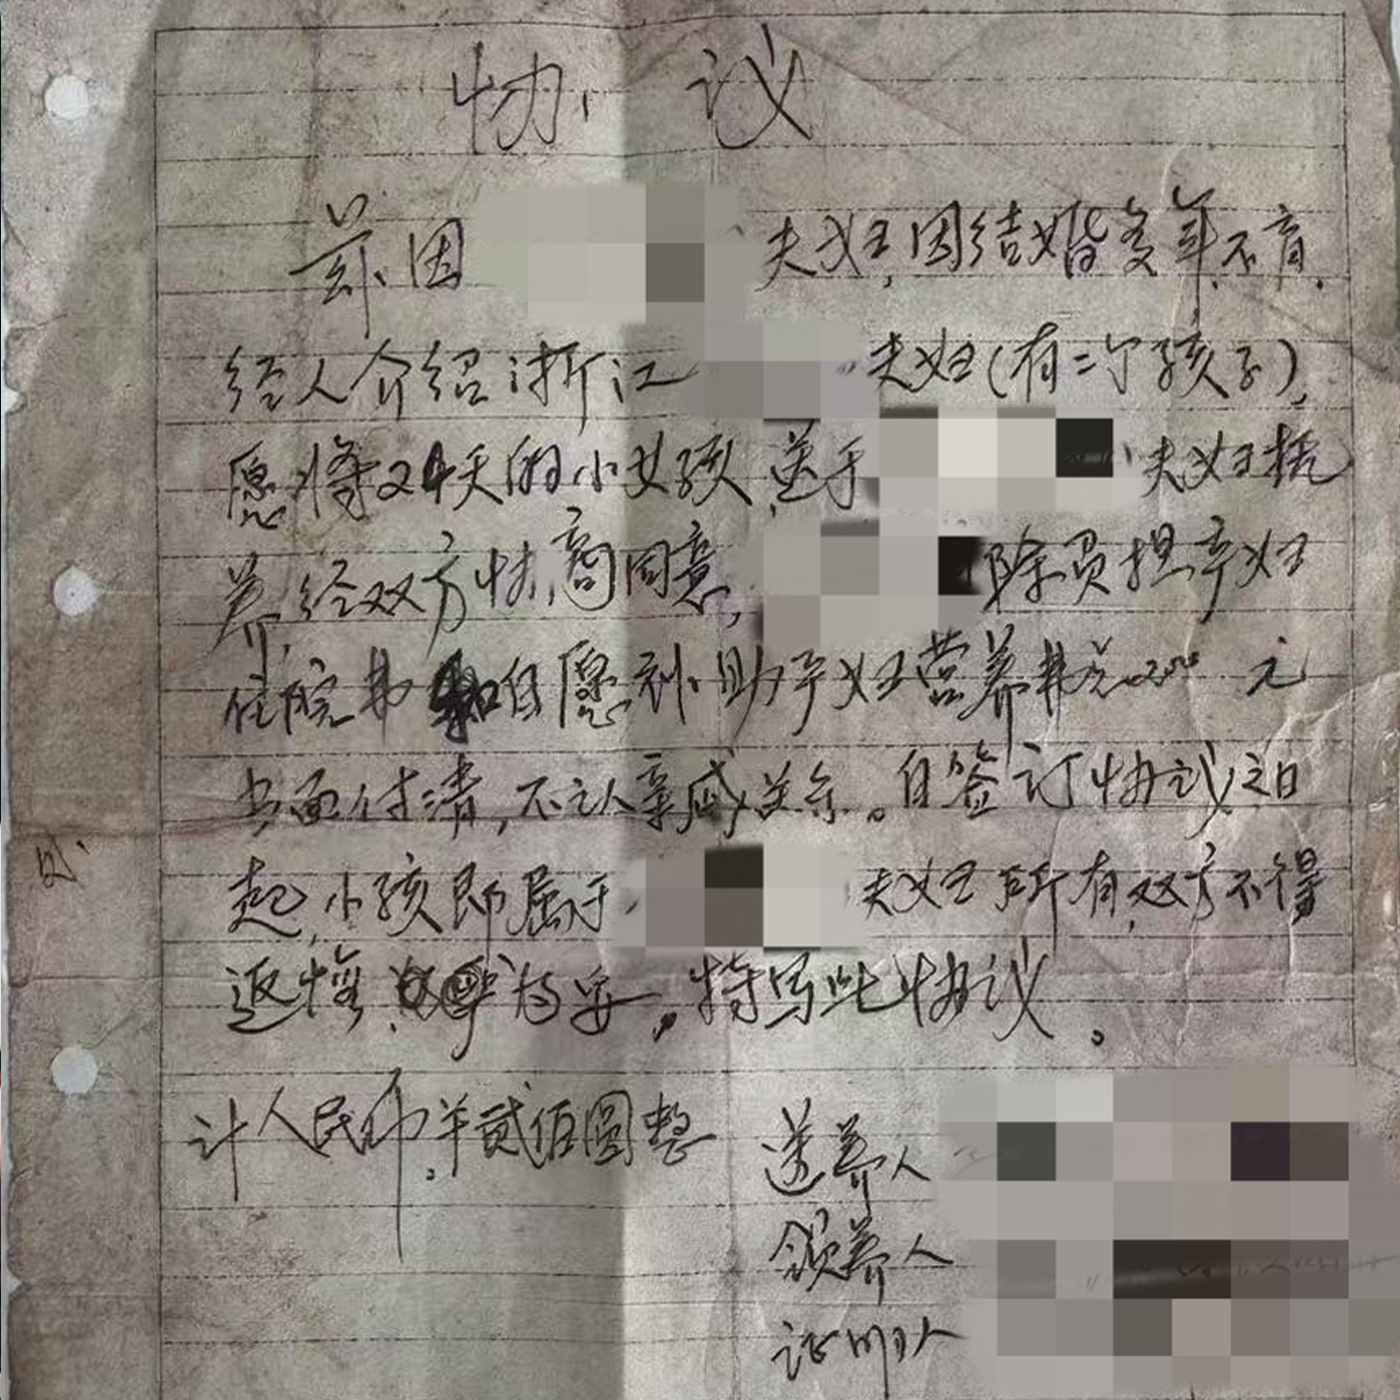 协议
兹因 夫妇,因结婚多年不育.
经人介绍浙江 夫妇(有二个孩子),
愿将24天的小女孩送于 夫妇抚
养,经双方协商同意, 除负担产妇
住院费和自愿补助产妇营养费 元
当面付清,不认亲戚关系。自签订协议之日
起,小孩即属于 夫妇所有,双方不得
返悔, 特写此协议。
计人民币. 贰佰圆整
送养人
领养人
证明人